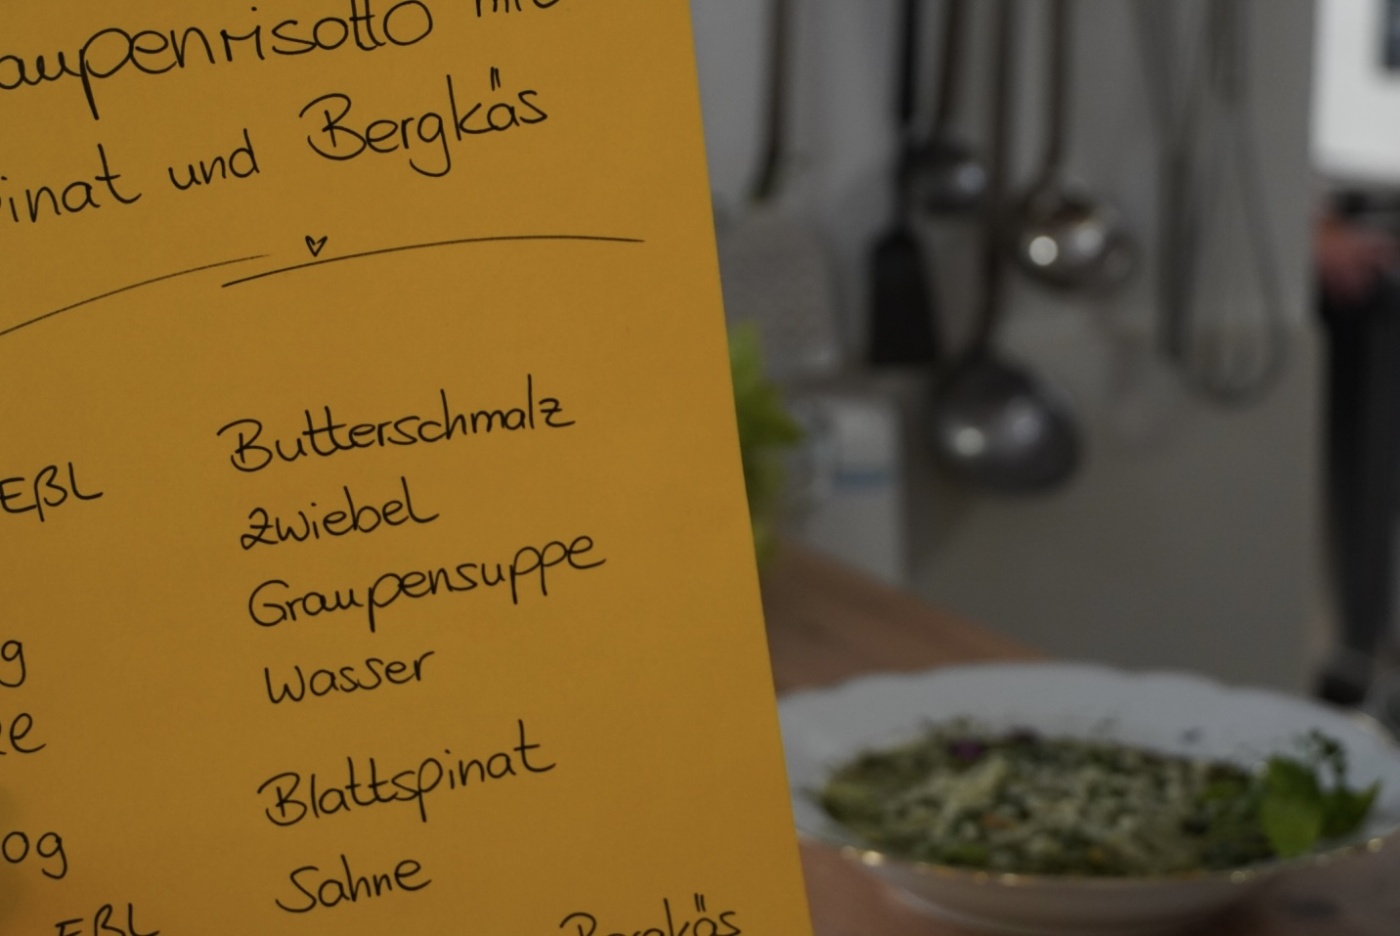 aupenrisotto mit
inat und Bergkäs
Butterschmalz
EßL
Zwiebel
Graupensuppe
g
Wasser
Blattspinat
og
Sahne
EßL
Bergkäs